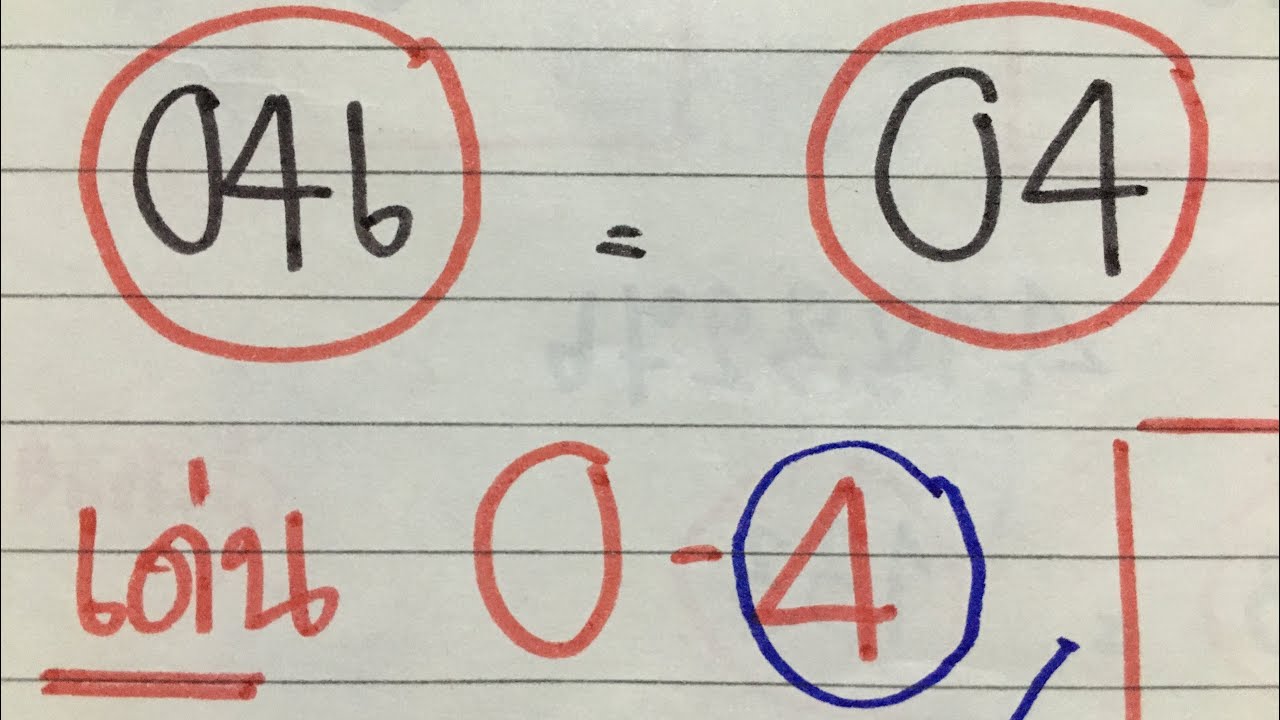 046 = 04
เด่น 0-4